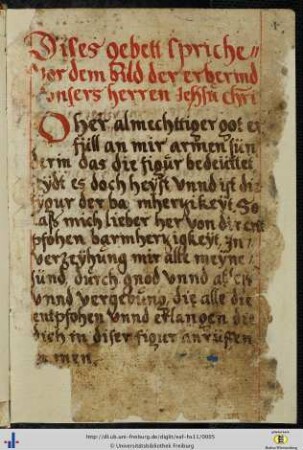 Dises gebett spriche
vor dem bild der erbermd
vnsers herren Jehsu Chri
O her almechttiger got er
füll an mir armen sün
derin das die figur bedeüttet
es doch heyst vnnd ist die
figur der barmherzikeyt So
laß mich lieber her von dir ent
pfohen barmherzigkeyt In
verzeyhung mir alle meyne
sünd durch gnod vnnd
vnnd vergebung die alle die
entpfohen vnnd erlangen die
dich in diser figur anrüffen
amen.
http://dl.ub.uni-freiburg.de/diglit/saf-hs11/0005
© Universitätsbibliothek Freiburg